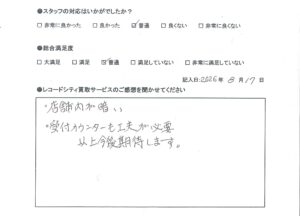 ●スタッフの対応はいかがでしたか？
□非常に良かった □良かった ☑普通 □良くない □非常に良くない
●総合満足度
□大満足 □満足 ☑普通 □満足していない □非常に満足していない
記入日:2026年 8月 17日
●レコードシティ買取サービスのご感想を聞かせてください
・店舗内が暗い
・受付カウンターも工夫が必要
以上今後期待します。